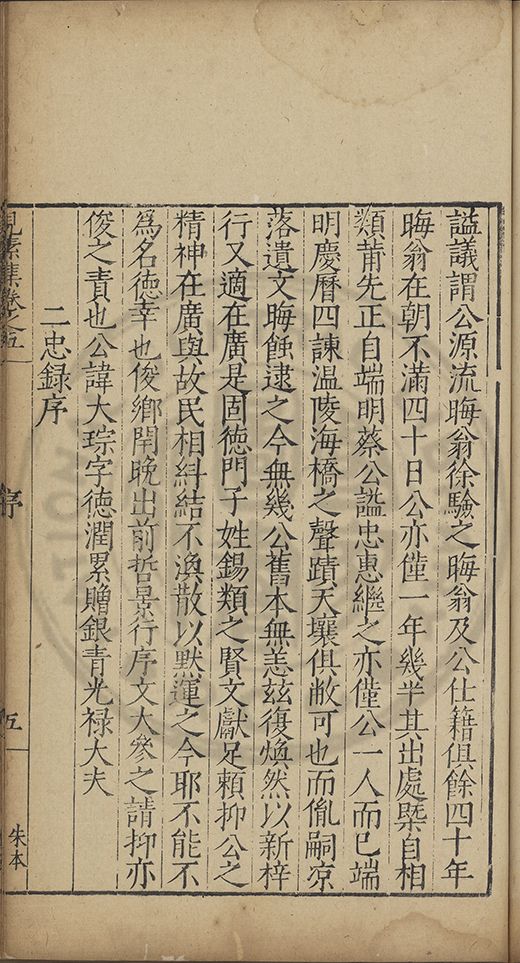 謚議謂公源流晦翁徐驗之晦翁及公仕籍俱餘四十年
晦翁在朝不滿四十日公亦僅一年幾半其出處槩自相
類莆先正自端明蔡公謚忠惠繼之亦僅公一人而已端
明慶曆四諫温陵海橋之聲蹟天壤俱敝可也而胤嗣凉
落遺文晦蝕逮之今無幾公舊本無恙兹復煥然以新梓
行又適在廣是固德門子姓錫類之賢文獻足頼抑公之
精神在廣與故民相糾結不渙散以默運之今耶不能不
爲名德幸也俊鄉閈晚出前哲景行序文大參之請抑亦
俊之責也公諱大琮字德潤累贈銀青光禄大夫
二忠録序
見素集卷之五
序
五
朱本